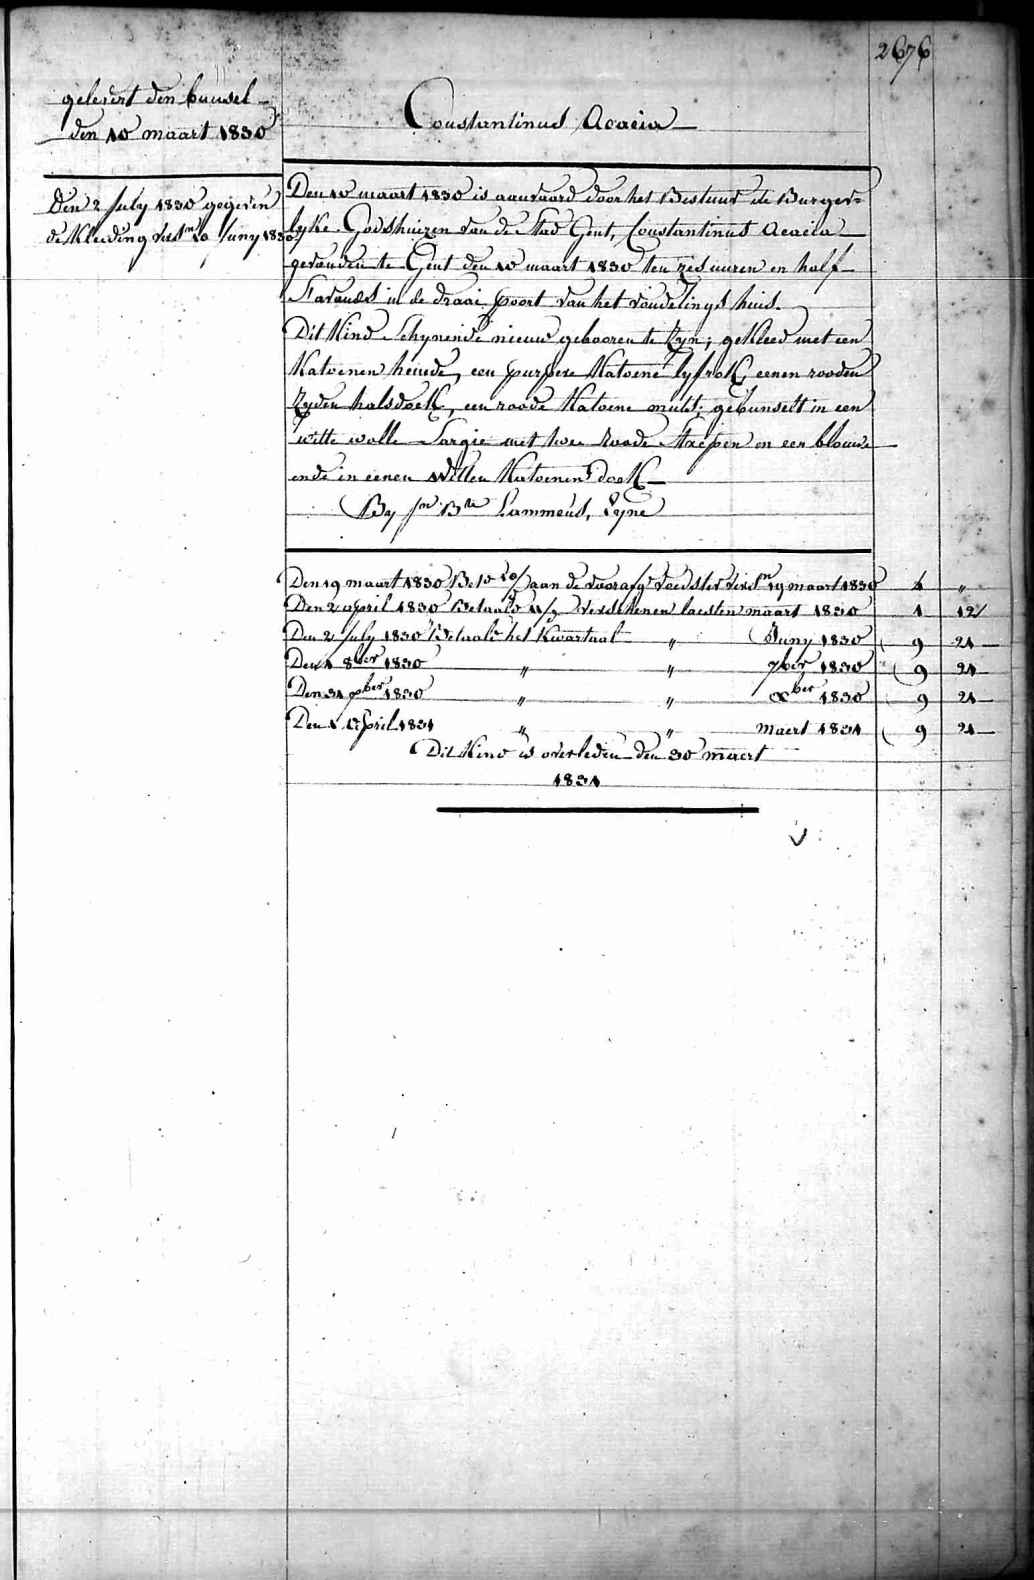 2676
gelevert den bunsel
den 10 maart 1830
Constantinus Acacia
Den 2 July 1830 gegeven
de Kleeding versn 10 Juny 1830
Den 10 maart 1830 is aanvaard door het Bestuur de Burger=
lyke Godshuizen van de Stad Gent, Constantinus Acacia
gevonden te Gent den 10 maart 1830 ten zes uuren en half
s'avonds in de draai poort van het vondelings huis.
Dit Kind schynende nieuw gebooren te Zyn; gekleed met een
Katoenen hemde, een purpere Katoene lyfrok, eenen rooden
Zyden halsdoek, een roode Katoene muts; gebunselt in een
witte wolle Sargie met twee Roode Strepen en een blauwe
ende in eenen Witten Katoenen doek
By Lammens, Eyne
Den 19 maart 1830 aan de voedster versn 19 maart 1830 "
Den 2 april 1830 Betaald verschenen laesten maart 1830 1 12/
Den 2 July 1830 Betaald het Kwartaal " Juny 1830 9 24
Den 1 8ber 1830 " " 7ber 1830 9 24
Den 31 xber 1830 " " xber 1830 9 24
Den 1 April 1831 " " maert 1831 9 24
Dit Kind is overleden den 30 maert
1831